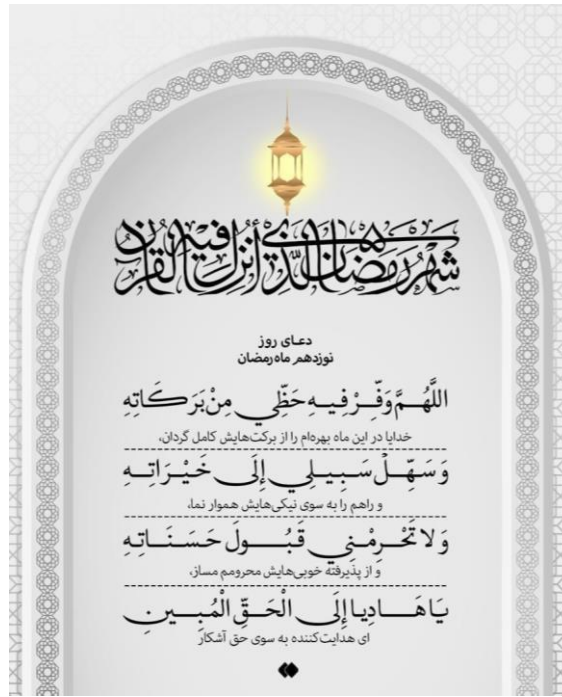 شَهْرُ رَمَضَانَ الَّذِي أُنْزِلَ فِيهِ الْقُرْآنُ
دعای روز
نوزدهم ماه رمضان
اللَّهُمَّ وَفِّرْ فِيهِ حَظِّي مِنْ بَرَكَاتِهِ
خدایا در این ماه بهره‌ام را از برکت‌هایش کامل گردان،
وَسَهِّلْ سَبِيلِي إِلَى خَيْرَاتِهِ
و راهم را به سوی نیکی‌هایش هموار نما،
وَلا تَحْرِمْنِي قَبُولَ حَسَنَاتِهِ
و از پذیرفته خوبی‌هایش محرومم مساز،
يَا هَادِيا إِلَى الْحَقِّ الْمُبِينِ
ای هدایت‌کننده به سوی حق آشکار